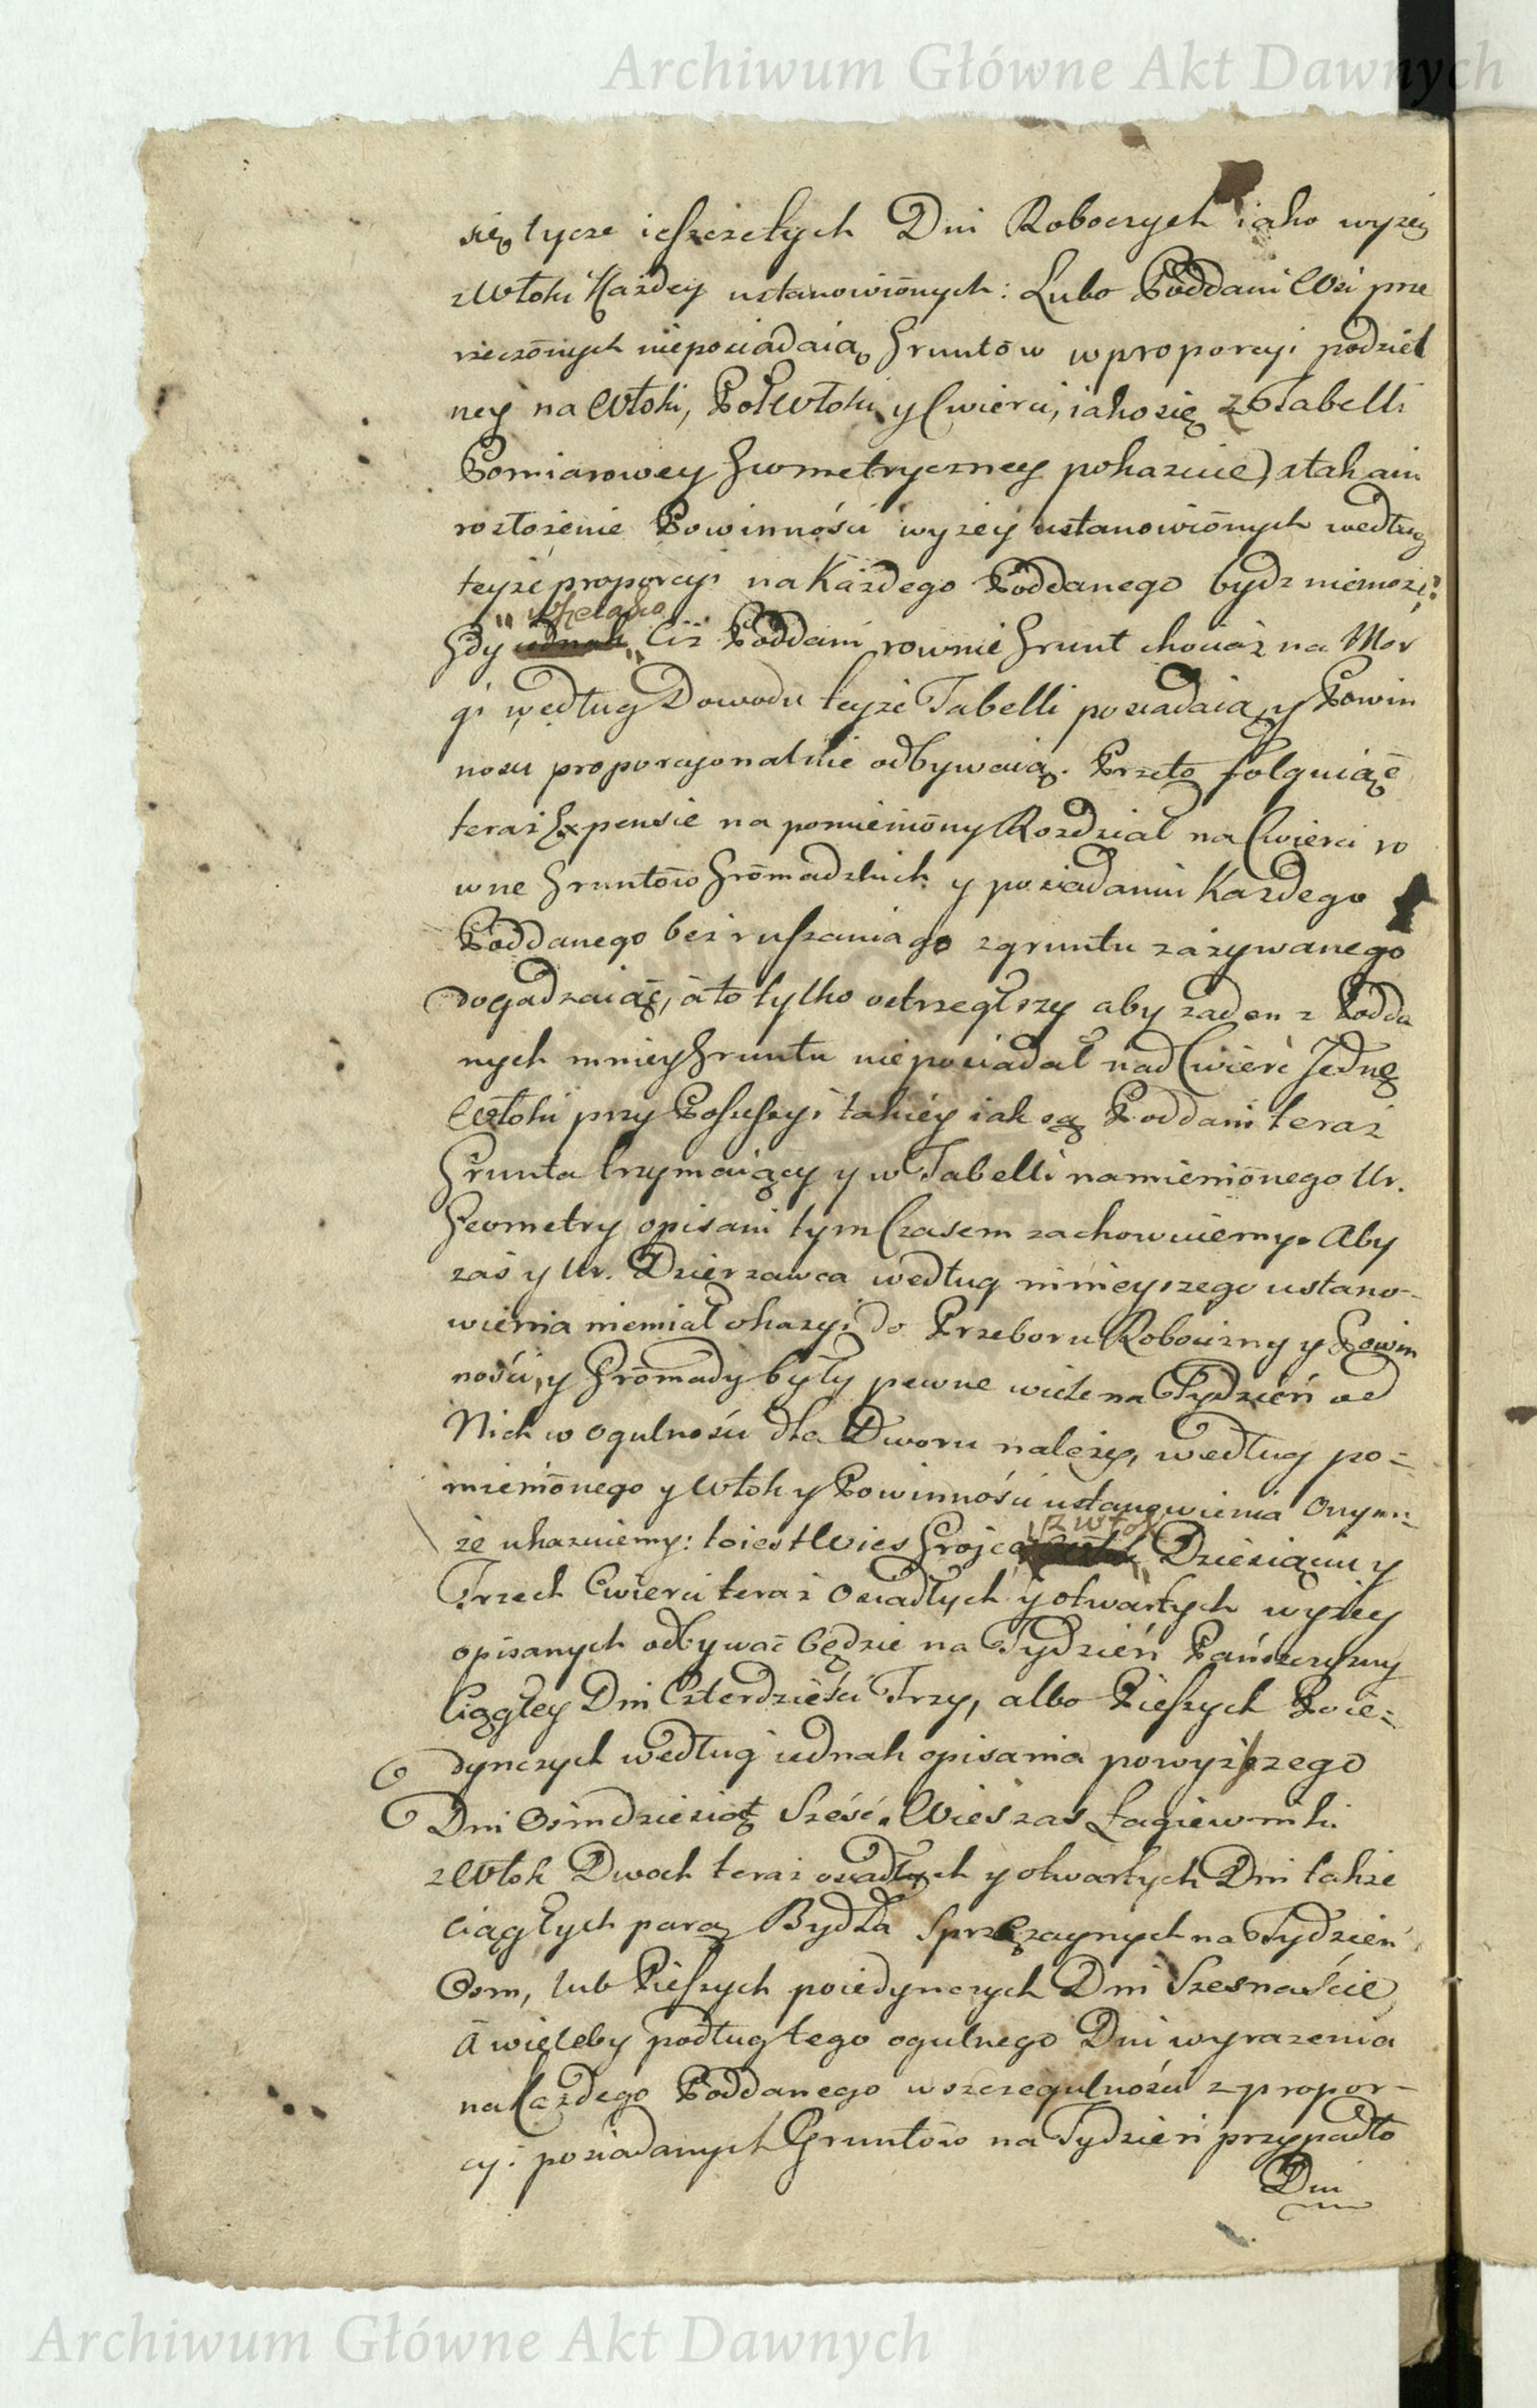 Archiwum Główne Akt Dawnych
się tycze ieszcze tych Dni Roboczych iako wyżey
z Włoki Każdey ustanowiōnych: Lubo Poddani Wsi prze
rzeczōnych nieposiadaią Gruntōw w proporcyi podziel
ney na Włoki, Poł Włoki y Cwierci, iako się z Tabelli
Pomiarowey Geometryczney pokazuie) a tak ani
rozłożenie Powinności wyżey ustanowiōnych według
teyże proporcyi na Każdego Poddanego bydz niemoże:
wszelako
Gdy jednak Ciż Poddani rownie Grunt chociaż na Mor
gi według Dowodu teyże Tabelli posiadaią, y Powin
nosci proporcyonalnie odbywaią. Przeto folguiąc
teraz Expensie na pomieniōny Rozdział na Cwierci ro
wne Gruntōw Grōmadzkich y posiadaniu Każdego
Poddanego bez ruszania go z gruntu zażywanego
dogadzaiąc, a to tylko ostrzegłszy aby żaden z Podda
nych mniey Gruntu nieposiadał nad Cwierć Jednę
Włoki przy Possessyi takiey iak są Poddani teraz
Grunta trzymaiący y w Tabelli namieniōnego Ur.
Geometry opisani tym Czasem zachowuiemy. Aby
zaś y Ur. Dzierzawca według ninieyszego ustano-
wienia niemiał okazyi do Przeboru Robocizny y Powin
ności, y Grōmady były pewne wiele na Tydzień od
Nich w ogulności dla Dworu należy, według po=
mieniōnego y Włok y Powinności ustanowienia Onym=
że ukazuiemy: to iest Wies Grojce
z Włok
Dziesiąciu y
Trzech Cwierci teraz Osiadłych y otwartych wyżey
opisanych odbywać będzie na Tydzień Pańszczyzny
Ciągłey Dni Czterdzieści Trzy, albo Pieszych Poie=
dynczych według iednak opisania powyższego
Dni Osmdziesiąt Sześć. Wies zas Łagiewniki
z Włok Dwoch teraz osiadłych y otwartych Dni także
ciągłych parą Bydła Sprzęzaynych na Tydzień
Osm, lub Pieszych poiedynczych Dni Szesnaście,
A wieleby podług tego ogulnego Dni wyrazenia
na Każdego Poddanego w szczegulności z propor-
cyi posiadanych Gruntōw na Tydzień przypadło
Dni
Archiwum Główne Akt Dawnych